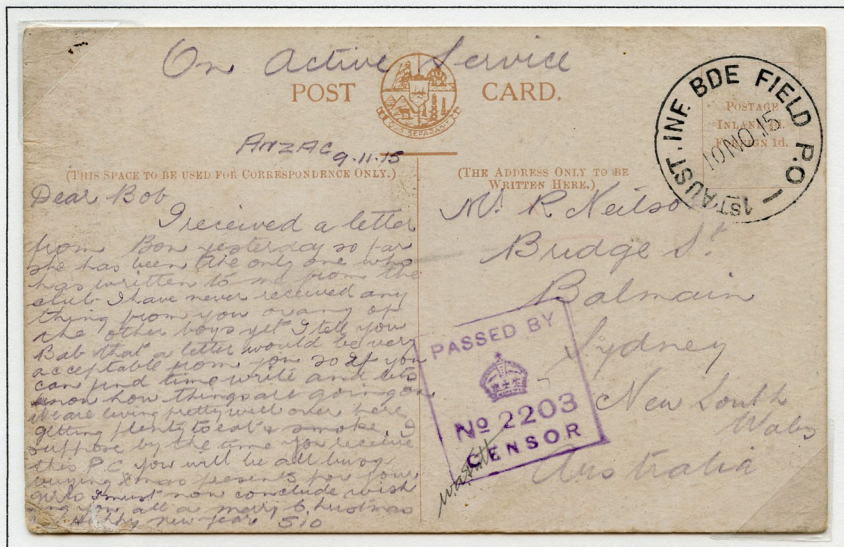 On Active Service
POST CARD.
ANZAC 9.11.15
(THIS SPACE TO BE USED FOR CORRESPONDENCE ONLY.)
Dear Bob
I received a letter
from Bon yesterday so far
she has been the only one who
has written to me from the
club I have never received any
thing from you or any of
the other boys yet I tell you
Bob that a letter would be very
acceptable from you so if you
can find time write and let's
know how things are going on
we are living pretty well over here
getting plenty to eat & smoke. I
suppose by the time you receive
this P.C. you will be all busy
buying Xmas presents for your
girls I must now conclude wish
ing you all a merry Christmas
& Happy new year
(THE ADDRESS ONLY TO BE
WRITTEN HERE.)
Mr R Neilso
Bridge St
Balmain
Sydney
New South
Wales
Australia
POSTAGE
INLAND
1d.
1ST AUST. INF. BDE FIELD P.O
10 NO 15
PASSED BY
No 2203
CENSOR